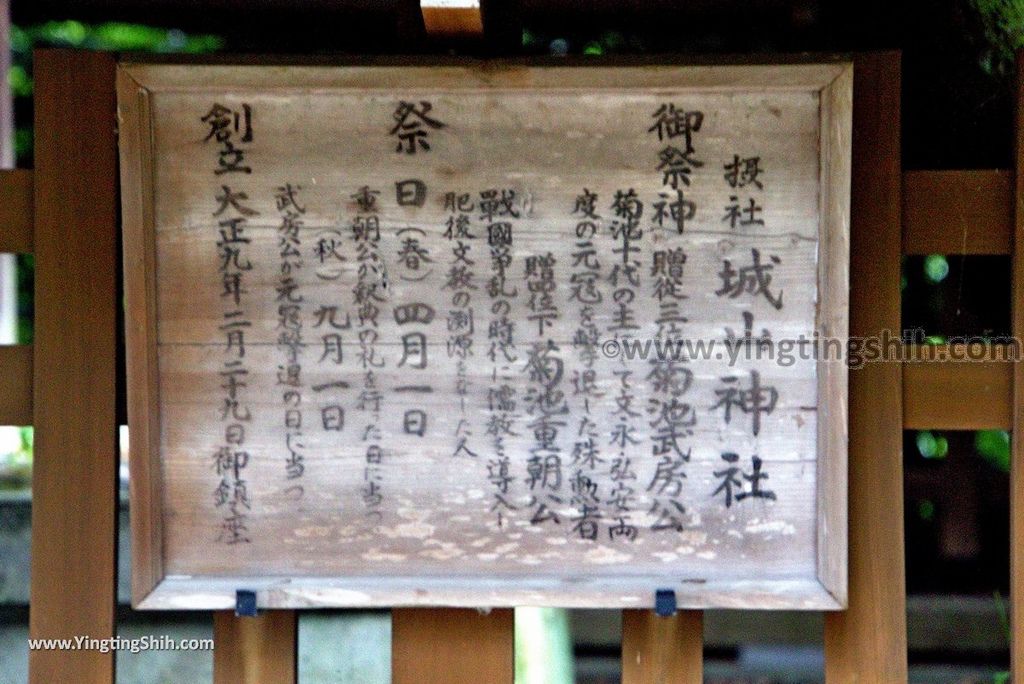 摂社 城山神社
御祭神 贈従三位菊池武房公
菊池十代の主して文永・弘安両
度の元冦を撃退した殊勲者
贈四位下 菊池重朝公
戰國争乱の時代に儒教を導入し
肥後文教の渕源をなした人
祭日(春)四月一日
重朝公が釈典の礼を行った日に当つ
(秋)九月一日
武房公が元冦撃退の日に当つ
創立 大正九年二月二十九日御鎮座
©www.yingtingshih.com
www.YingtingShih.com